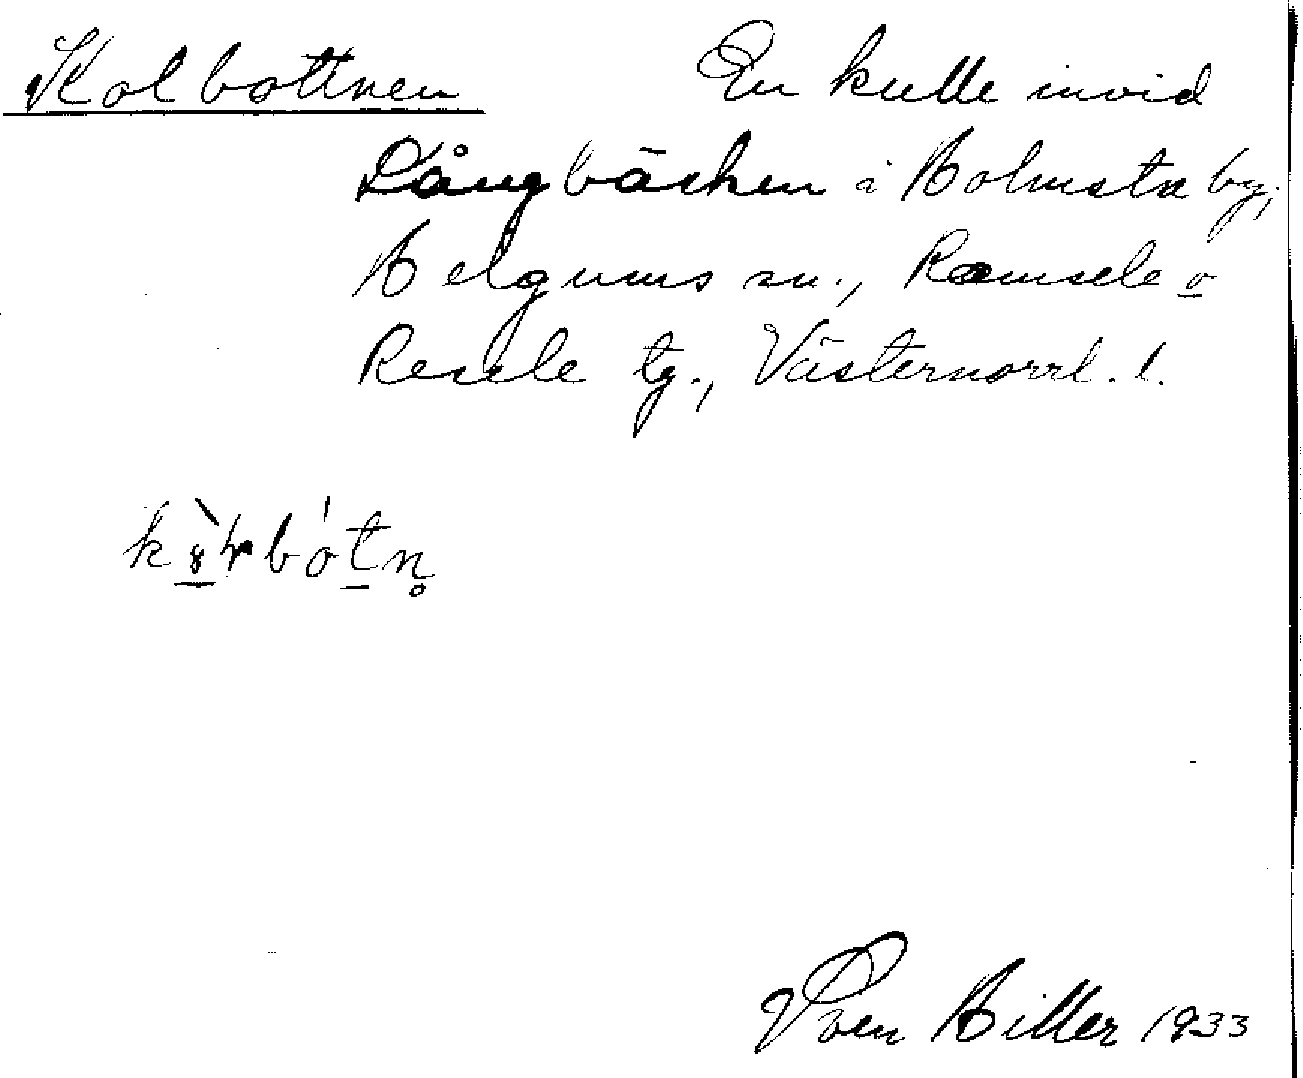 Kolbottnen En kulle invid
Långbäcken i Holmstn by,
Helgums sn., Ramsele o
Resele tg., Västernorrl. l.
Sven Hiller 1933